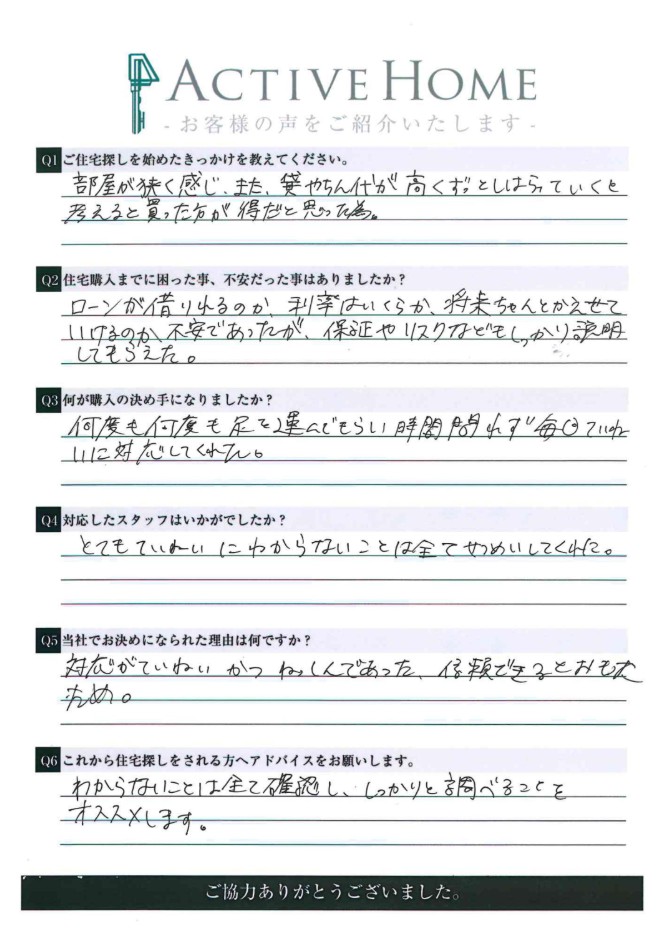 ACTIVE HOME
- お客様の声をご紹介いたします -
Q1 ご住宅探しを始めたきっかけを教えてください。
部屋が狭く感じ、また、賃やちん代が高くずっとしはらっていくと
考えると買った方が得だと思った為。
Q2 住宅購入までに困った事、不安だった事はありましたか？
ローンが借りれるのか、利率はいくらか、将来ちゃんとかえせて
いけるのか不安であったが、保証やリスクなどもしっかり説明
してもらえた。
Q3 何が購入の決め手になりましたか？
何度も何度も足を運んでもらい時間問わず毎日ていね
いに対応してくれた。
Q4 対応したスタッフはいかがでしたか？
とてもていねいにわからないことは全てせつめいしてくれた。
Q5 当社でお決めになられた理由は何ですか？
対応がていねいかつねっしんであった、信頼できるとおもった
ため。
Q6 これから住宅探しをされる方へアドバイスをお願いします。
わからないことは全て確認し、しっかりと調べることを
オススメします。
ご協力ありがとうございました。